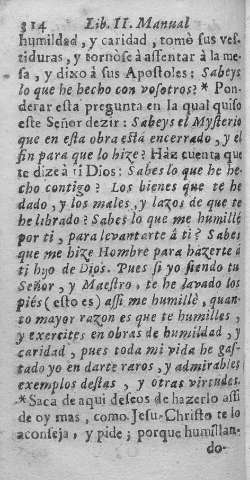 314 Lib. II. Manual
humildad, y caridad, tomò sus ves-
tiduras, y tornòse à assentar à la me-
sa, y dixo à sus Apostoles: Sabeys
lo que he hecho con vosotros? * Pon-
derar esta pregunta en la qual quiso
este Señor dezir: Sabeys el Mysterio
que en esta obra està encerrado, y el
fin para que lo hize? Haz cuenta que
te dize à ti Dios: Sabes lo que he he-
cho contigo? Los bienes que te he
dado, y los males, y lazos de que te
he librado? Sabes lo que me humillè
por ti, para levantarte á ti? Sabes
que me hize Hombre para hazerte á
ti hijo de Dios. Pues si yo siendo tu
Señor, y Maestro, te he lavado los
piés (esto es) assi me humillè, quan-
to mayor razon es que te humilles,
y exercites en obras de humildad, y
caridad, pues toda mi vida he gas-
tado yo en darte raros, y admirables
exemplos destas, y otras virtudes.
* Saca de aqui deseos de hazerlo assi
de oy mas, como Jesu-Christo te lo
aconseja, y pide; porque humillan-
do-